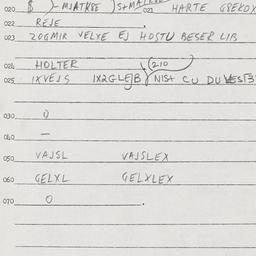 020 021 HARTE GREKOX
022 REJE
023 ZOGMIR VELYE EJ HOSTU BESER LIB
024 HOLTER (210
025 IXVEJS IXZGLEJB NIST CU DU
030 0
040 —
050 VAJSL VAJSLEX
060 GELXL GELXLEX
070 0